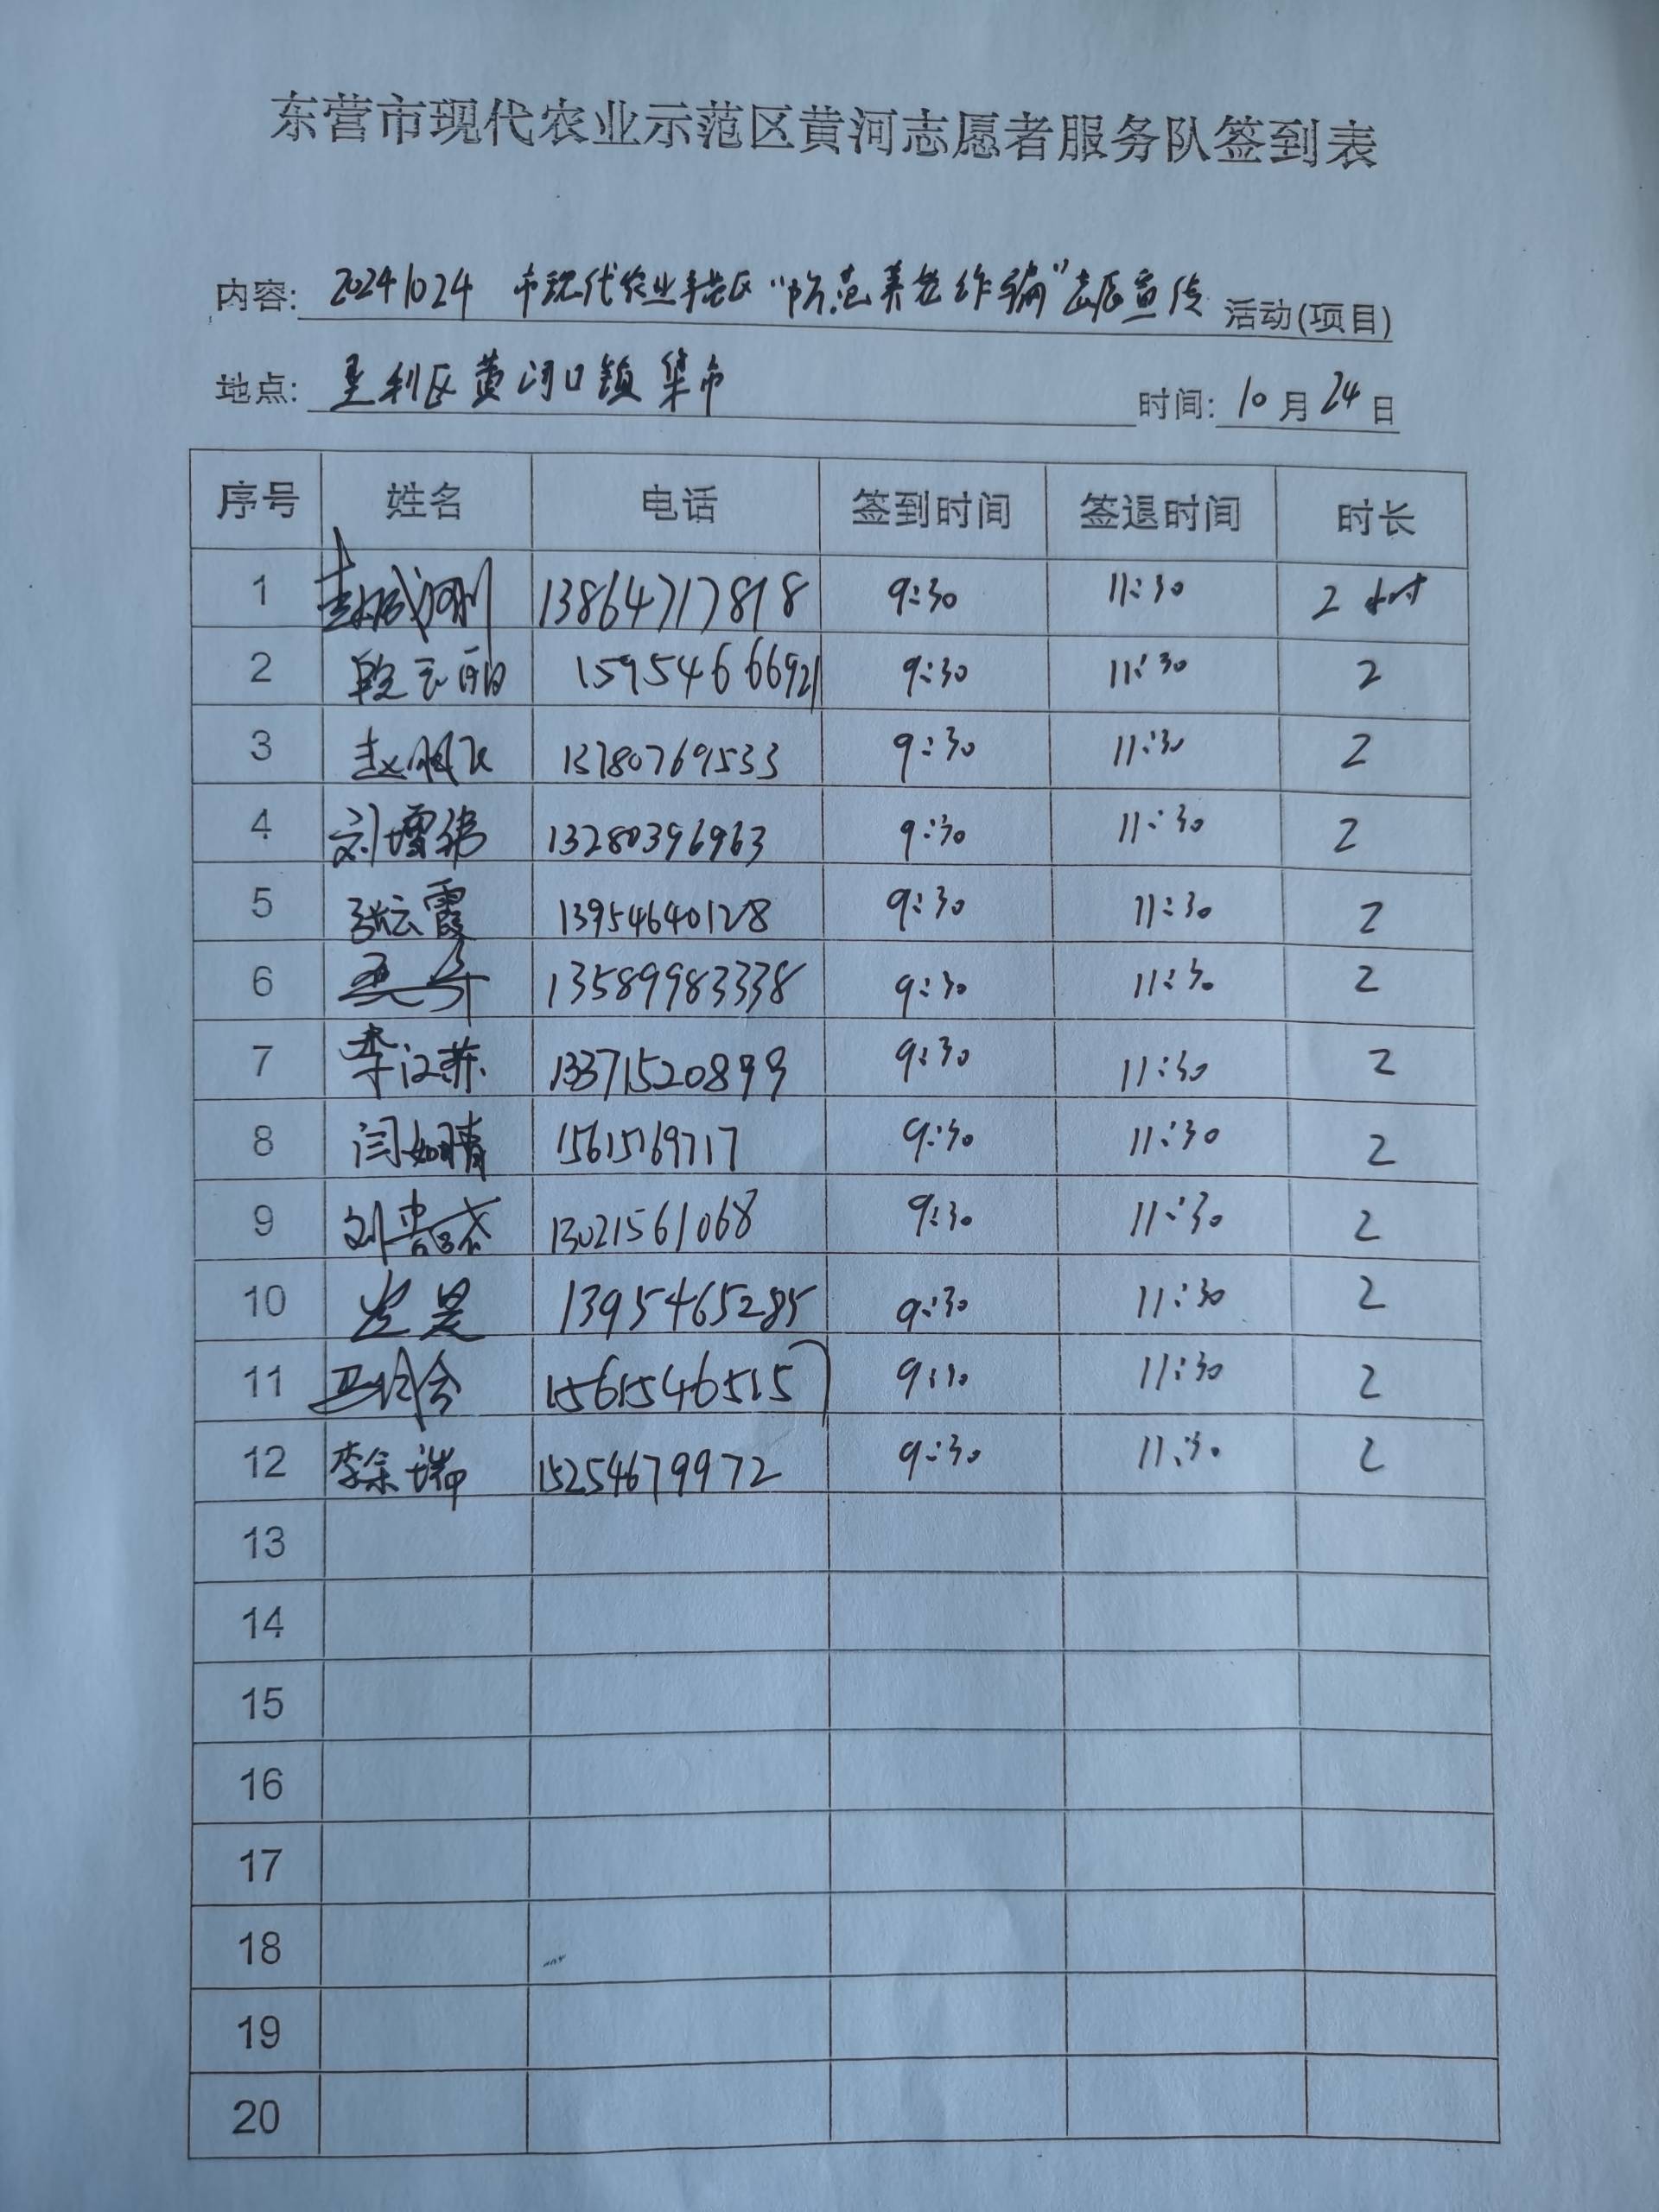 东营市现代农业示范区黄河志愿者服务队签到表
内容: 20241024 市现代农业示范区“防范养老诈骗”志愿宣传 活动(项目)
地点: 垦利区黄河口镇集市 时间: 10月24日
序号 姓名 电话 签到时间 签退时间 时长
1 13864717818 9:30 11:30 2小时
2 15954666921 9:30 11:30 2
3 13780769533 9:30 11:30 2
4 刘增强 13280396963 9:30 11:30 2
5 张云霞 13954640128 9:30 11:30 2
6 13589983338 9:30 11:30 2
7 李江燕 13371520899 9:30 11:30 2
8 闫如晴 1561569717 9:30 11:30 2
9 13021561068 9:30 11:30 2
10 1395465285 9:30 11:30 2
11 15615465157 9:30 11:30 2
12 李宗瑞 15254679972 9:30 11:30 2
13
14
15
16
17
18
19
20